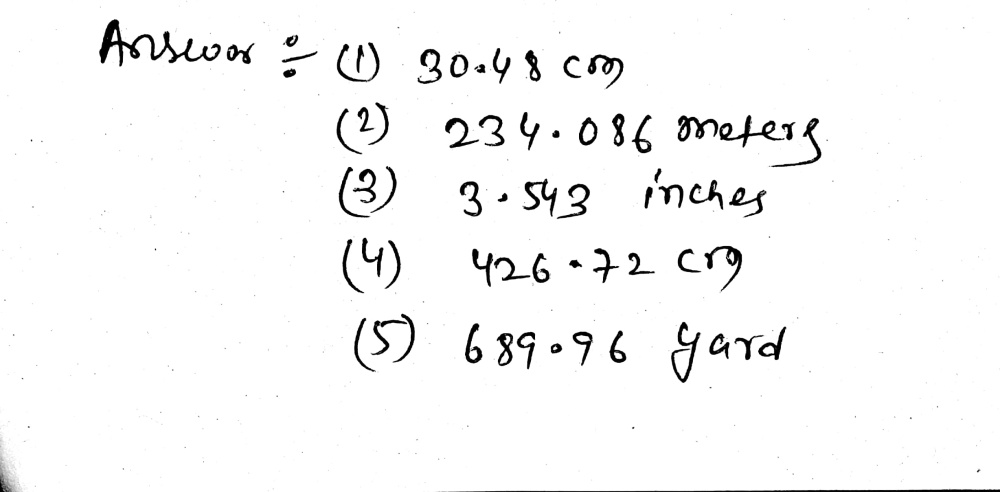 Answer ÷ (1) 30.48 cm
(2) 234.086 meters
(3) 3.543 inches
(4) 426.72 cm
(5) 689.96 yard